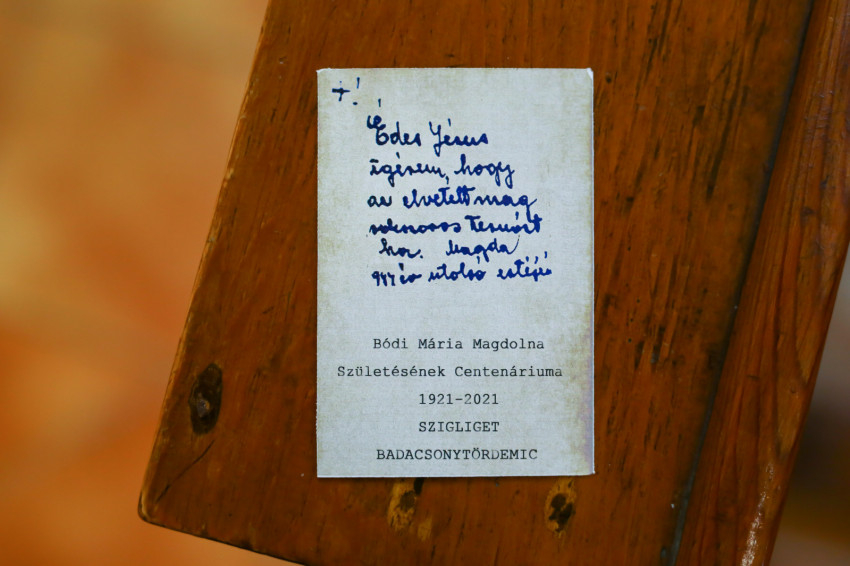 +!
Édes Jézus
ígérem, hogy
az elvetett mag
sokszoros termést
hoz. Magda
944 év utolsó estéjén
Bódi Mária Magdolna
Születésének Centenáriuma
1921-2021
SZIGLIGET
BADACSONYTÖRDEMIC